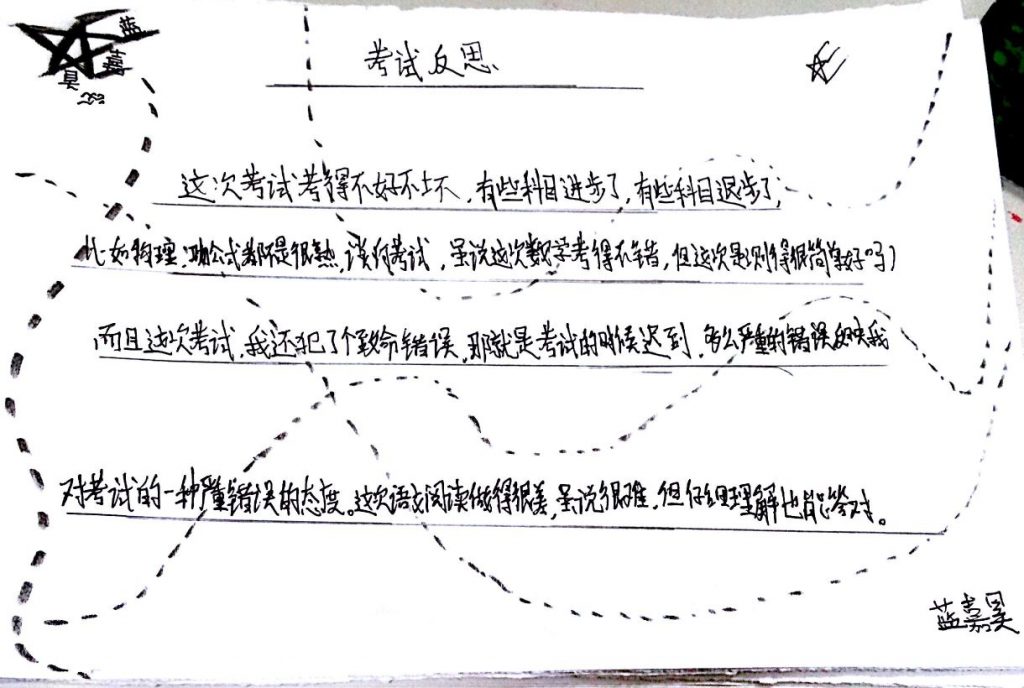 蓝
嘉
昊
考试反思
这次考试考得不好不坏，有些科目进步了，有些科目退步了，
比如物理，公式都不是很熟，谈何考试，虽说这次数学考得不错，但这次是测得很简单好吗）
而且这次考试，我还犯了个致命错误，那就是考试的时候迟到，多么严重的错误反映我
对考试的一种严重错误的态度。这次语文阅读做得很差，虽说很难，但仔细理解也能答对。
蓝嘉昊